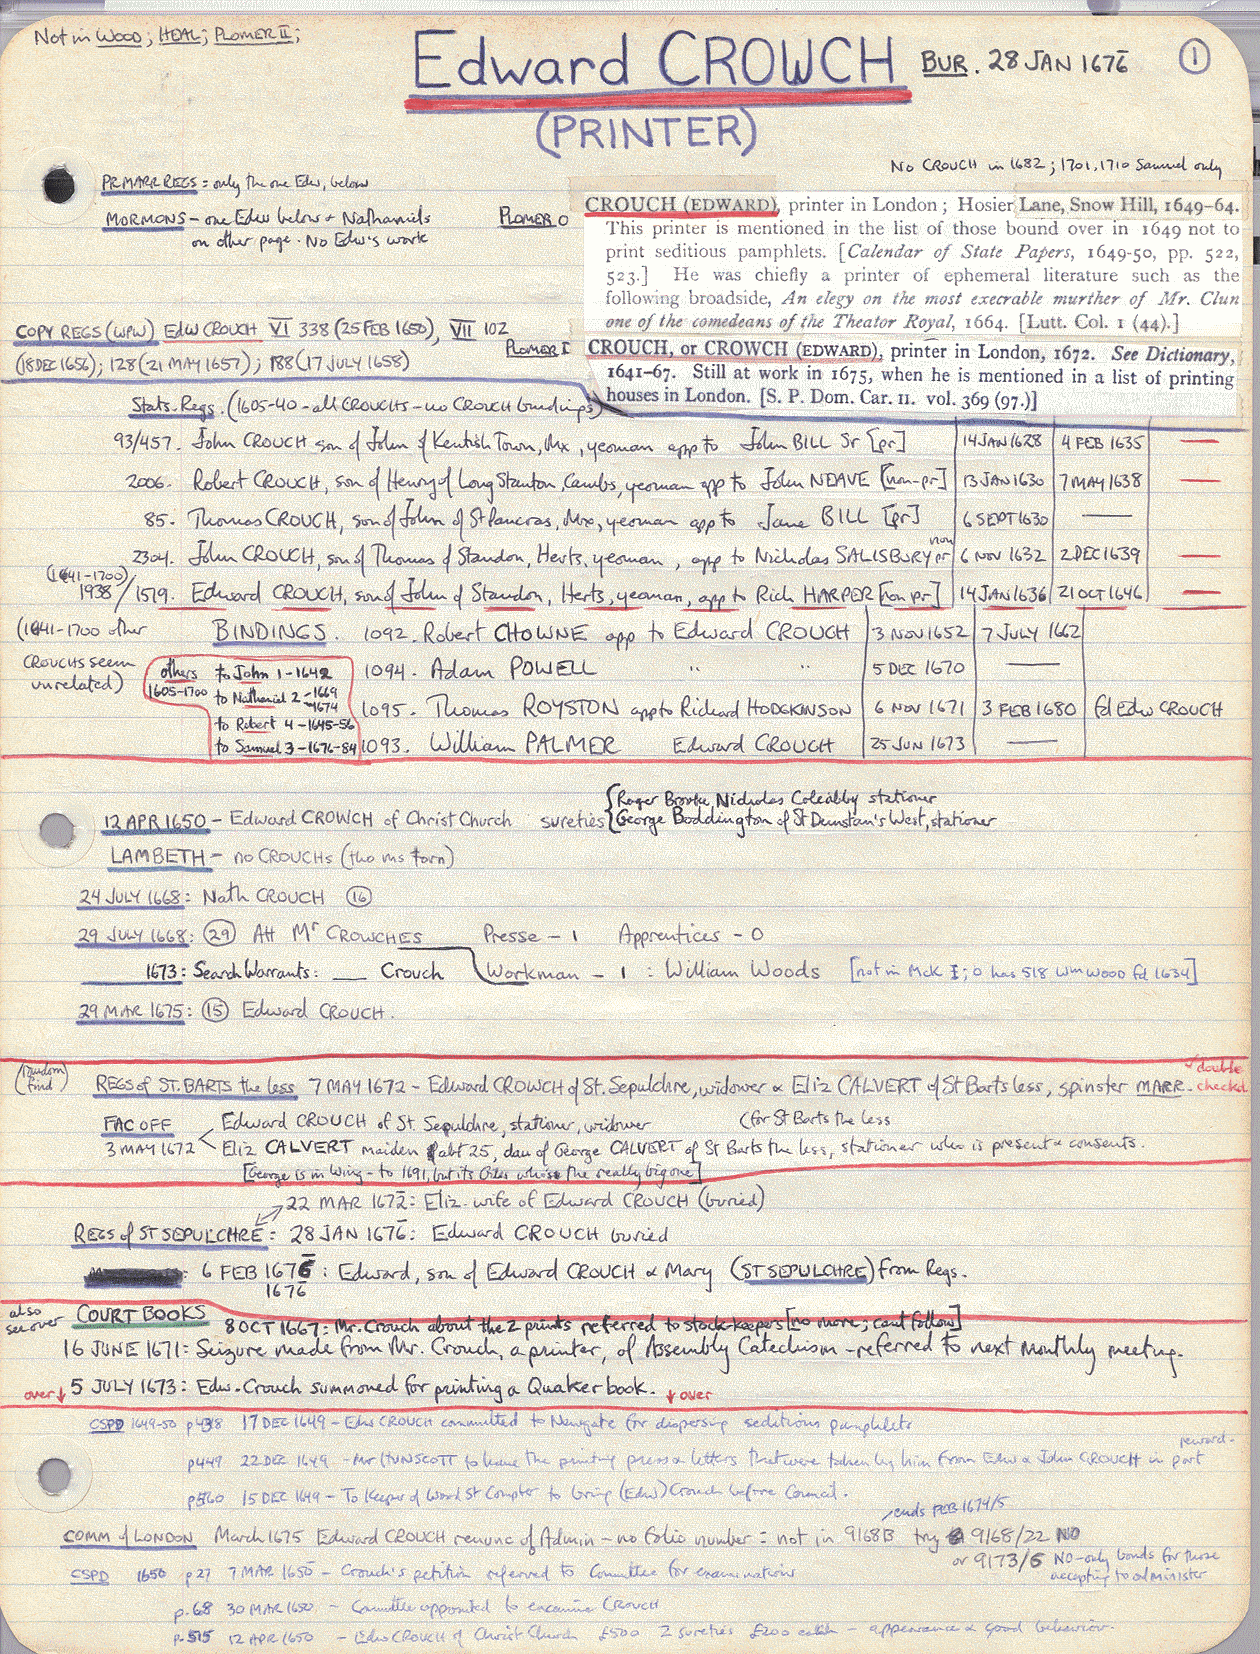 Not in WOOD; HEAL; PLOMER II;
Edward CROWCH BUR. 28 JAN 1676 1
(PRINTER)
No CROUCH in 1682; 1701, 1710 Samuel only
PR MARR REGS = only the one Edw, below
MORMONS - one Edw below & Nathaniels
on other page. No Edw's work
PLOMER O
CROUCH (EDWARD), printer in London; Hosier Lane, Snow Hill, 1649-64.
This printer is mentioned in the list of those bound over in 1649 not to
print seditious pamphlets. [Calendar of State Papers, 1649-50, pp. 522,
523.] He was chiefly a printer of ephemeral literature such as the
following broadside, An elegy on the most execrable murther of Mr. Clun
one of the comedeans of the Theator Royal, 1664. [Lutt. Col. I (44).]
PLOMER I
CROUCH, or CROWCH (EDWARD), printer in London, 1672. See Dictionary,
1641-67. Still at work in 1675, when he is mentioned in a list of printing
houses in London. [S. P. Dom. Car. II. vol. 369 (97.)]
COPY REGS (WPW) EDW CROUCH VI 338 (25 FEB 1650), VII 102
(18 DEC 1656); 128 (21 MAY 1657); 188 (17 JULY 1658)
Stats. Regs. (1605-40 - all CROUCHS - no CROUCH bindings)
93/457. John CROUCH son of John of Kentish Town, Mx, yeoman app to John BILL Sr [pr] 14 JAN 1628 4 FEB 1635 —
2006. Robert CROUCH, son of Henry of Long Stanton, Cambs, yeoman app to John NEAVE [non-pr] 13 JAN 1630 7 MAY 1638 —
85. Thomas CROUCH, son of John of St Pancras, Mx, yeoman app to Jane BILL [pr] 6 SEPT 1630 —
2304. John CROUCH, son of Thomas of Standon, Herts, yeoman, app to Nicholas SALISBURY non pr 6 NOV 1632 2 DEC 1639 —
(1641-1700)
1938/1519. Edward CROUCH, son of John of Standon, Herts, yeoman, app to Rich HARPER [non pr] 14 JAN 1636 21 OCT 1646 —
(1641-1700 other
CROUCHS seem
unrelated)
BINDINGS. 1092. Robert CHOWNE app to Edward CROUCH 3 NOV 1652 7 JULY 1662
others to John 1 - 1642
1605-1700 to Nathaniel 2 - 1669
1674
to Robert 4 - 1645-56
to Samuel 3 - 1676-84
1094. Adam POWELL " " 5 DEC 1670 —
1095. Thomas ROYSTON app to Richard HODGKINSON 6 NOV 1671 3 FEB 1680 fd Edw CROUCH
1093. William PALMER Edward CROUCH 25 JUN 1673 —
12 APR 1650 - Edward CROWCH of Christ Church sureties { Roger Brooke, Nicholas Coleabby stationer
George Boddington of St Dunstan's West, stationer
LAMBETH - no CROUCHs (tho ms torn)
24 JULY 1668: Nath CROUCH 16
29 JULY 1668: 29 Att Mr CROWCHES Presse - 1 Apprentices - 0
1673: Search Warrants: __ Crouch Workman - 1 : William Woods [not in McK I; 0 has 518 Wm WOOD fd 1634]
29 MAR 1675: 15 Edward CROUCH.
(random find) REGS of ST. BARTS the less 7 MAY 1672 - Edward CROWCH of St. Sepulchre, widower & Eliz CALVERT of St Barts less, spinster MARR. double checked
FAC OFF Edward CROUCH of St. Sepulchre, stationer, widower (for St Barts the less
3 MAY 1672 Eliz CALVERT maiden abt 25, dau of George CALVERT of St Barts the less, stationer who is present & consents.
[George is in Wing - to 1691, but its Giles whose the really big one]
22 MAR 1672: Eliz. wife of Edward CROUCH (buried)
REGS of ST SEPULCHRE: 28 JAN 1676: Edward CROUCH buried
: 6 FEB 1676 : Edward, son of Edward CROUCH & Mary (ST SEPULCHRE) from Regs.
1676
also see over COURT BOOKS 8 OCT 1667: Mr. Crouch about the 2 prints referred to stock-keepers [no more; cant follow]
16 JUNE 1671: Seizure made from Mr. Crouch, a printer, of Assembly Catechism - referred to next monthly meeting.
over ↓ 5 JULY 1673: Edw. Crouch summoned for printing a Quaker book. ↓ over
CSPD 1649-50 p438 17 DEC 1649 - Edw CROUCH committed to Newgate for dispersing seditious pamphlets
p449 22 DEC 1649 - Mr HUNSCOTT to have the printing press & letters that were taken by him from Edw & John CROUCH in part reward.
p560 15 DEC 1649 - To Keeper of Wood St Compter to bring (Edw) Crouch before Council.
ends FEB 1674/5
COMM of LONDON March 1675 Edward CROUCH renunc of Admin - no folio number = not in 9168B try 9168/22 NO
or 9173/5 NO - only bonds for those
accepting to administer
CSPD 1650 p27 7 MAR 1650 - Crouch's petition referred to Committee for examinations
p.68 30 MAR 1650 - Committee appointed to examine CROUCH
p.515 12 APR 1650 - Edw CROUCH of Christ Church £500 2 sureties £200 each - appearance & good behaviour.